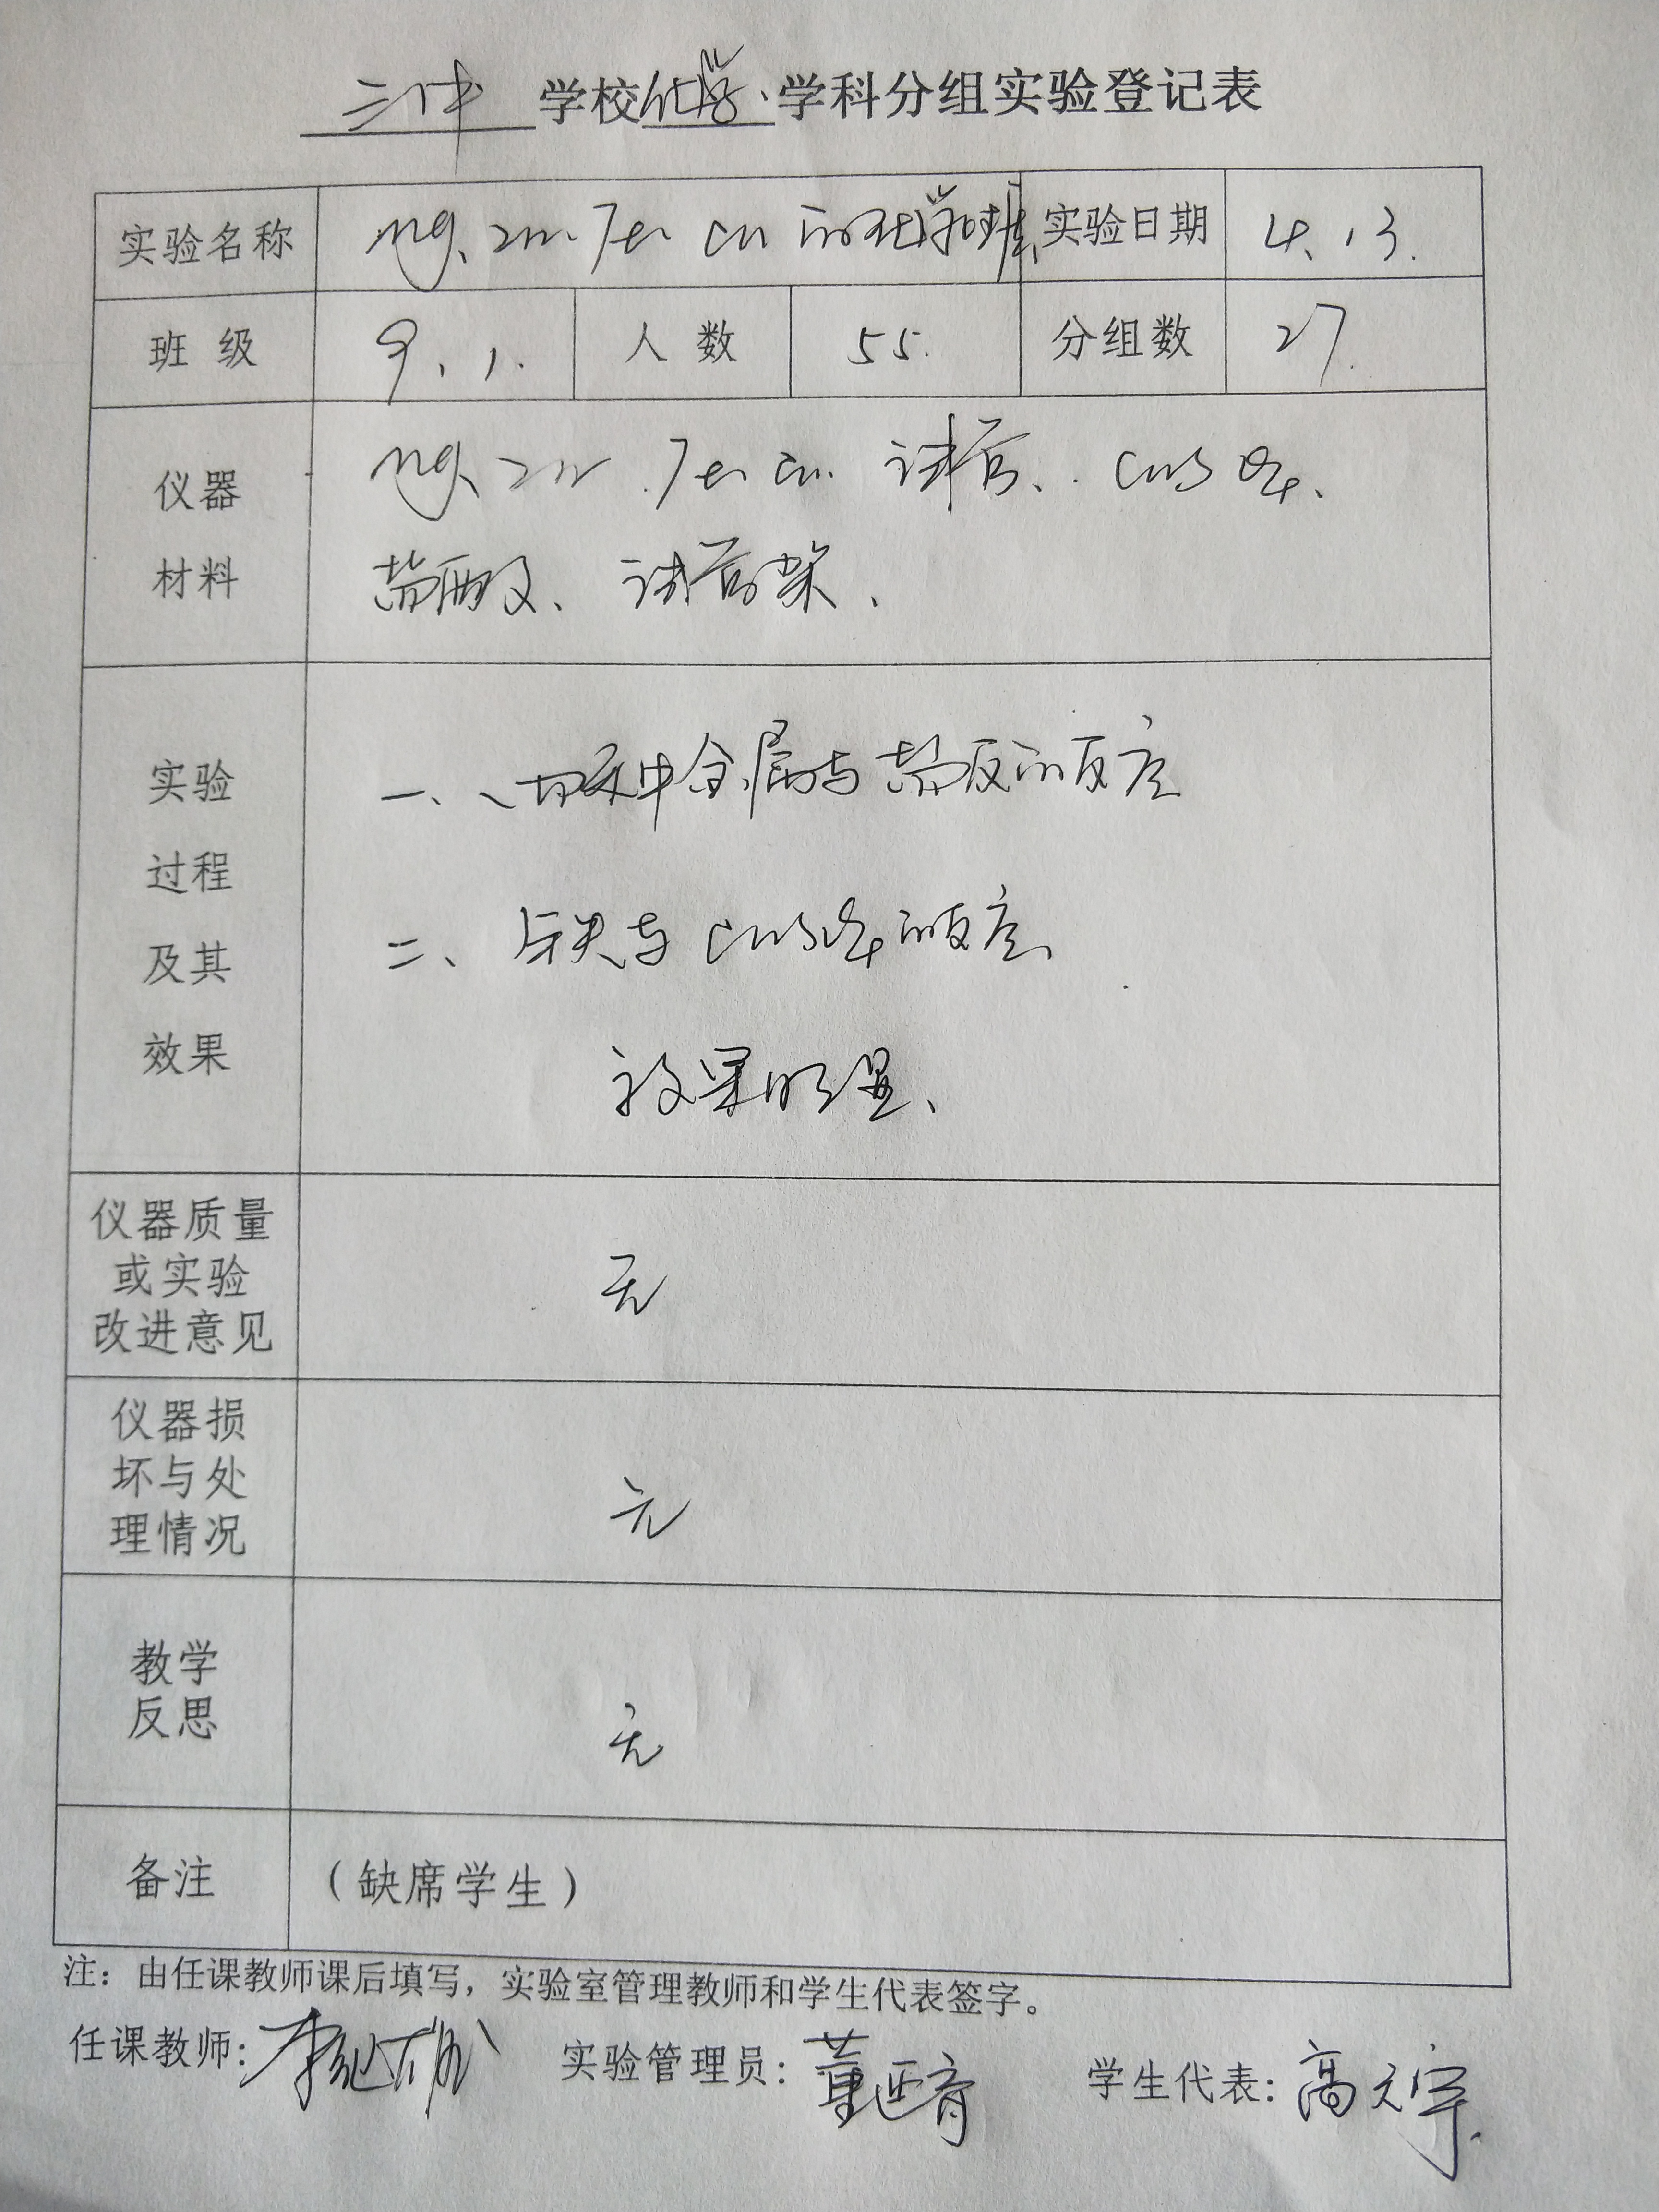 二中 学校 化学 学科分组实验登记表
实验名称 Mg、Zn、Fe、Cu 的化学性质 实验日期 4.13.
班级 9.1. 人数 55. 分组数 27.
仪器材料 Mg、Zn、Fe、Cu. 试管、CuSO4、
盐酸、试管架、
实验过程及其效果
一、中金属与盐酸的反应
二、与CuSO4的反应、
效果明显、
仪器质量或实验改进意见 无
仪器损坏与处理情况 无
教学反思 无
备注 (缺席学生)
注：由任课教师课后填写，实验室管理教师和学生代表签字。
任课教师: 李 实验管理员: 董 学生代表: 高